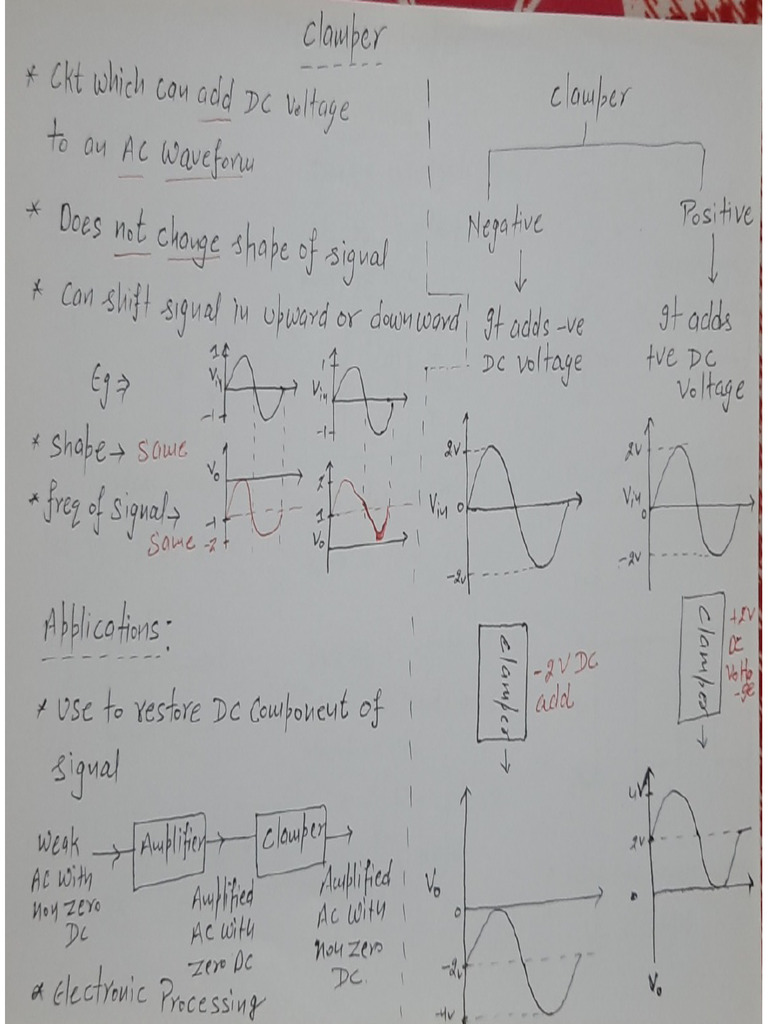 Clamper
* Ckt which can add DC Voltage
to an AC Waveform
* Does not change shape of signal
* Can shift signal in upward or downward
Eg ⇒
1
Vin
-1
1
Vin
-1
* Shape → Same
* freq of Signal →
Same
Vo
-1
-2
2
1
Vo
Applications:
* Use to restore DC Component of
signal
Weak
AC With
non zero
DC
Amplifier
Amplified
AC With
zero DC
Clamper
Amplified
AC With
non zero
DC.
* Electronic Processing
Clamper
Negative
It adds -ve
DC voltage
2V
Vin 0
-2V
Clamper
-2V DC
add
Vo
0
-2V
-4V
Positive
It adds
+ve DC
Voltage
2V
Vin
0
-2V
Clamper
+2V
DC
Volta
-ge
4V
2V
0
Vo